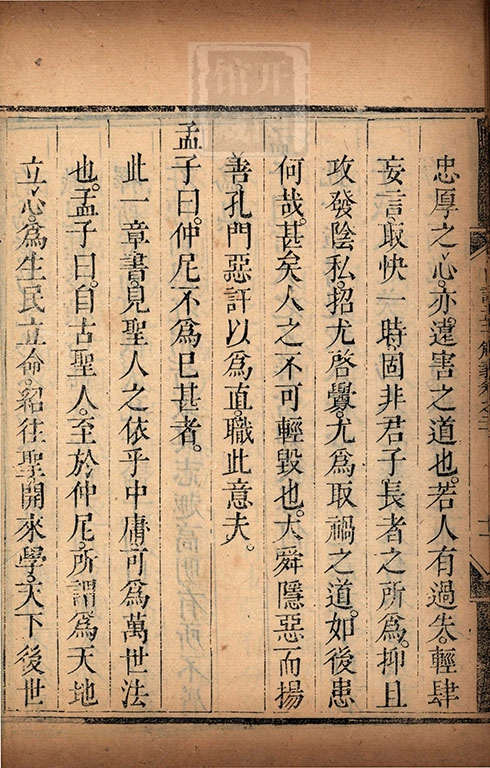 忠厚之心。亦遠害之道也。若人有過失。輕肆
妄言。取快一時。固非君子長者之所爲。抑且
攻發陰私。招尤啓釁。尤爲取禍之道。如後患
何哉。甚矣人之不可輕毀也。大舜隱惡而揚
善。孔門惡訐以爲直。職此意夫。
孟子曰。仲尼不爲已甚者。
此一章書。見聖人之依乎中庸。可爲萬世法
也。孟子曰。自古聖人。至於仲尼。所謂爲天地
立心。爲生民立命。紹往聖。開來學。天下後世